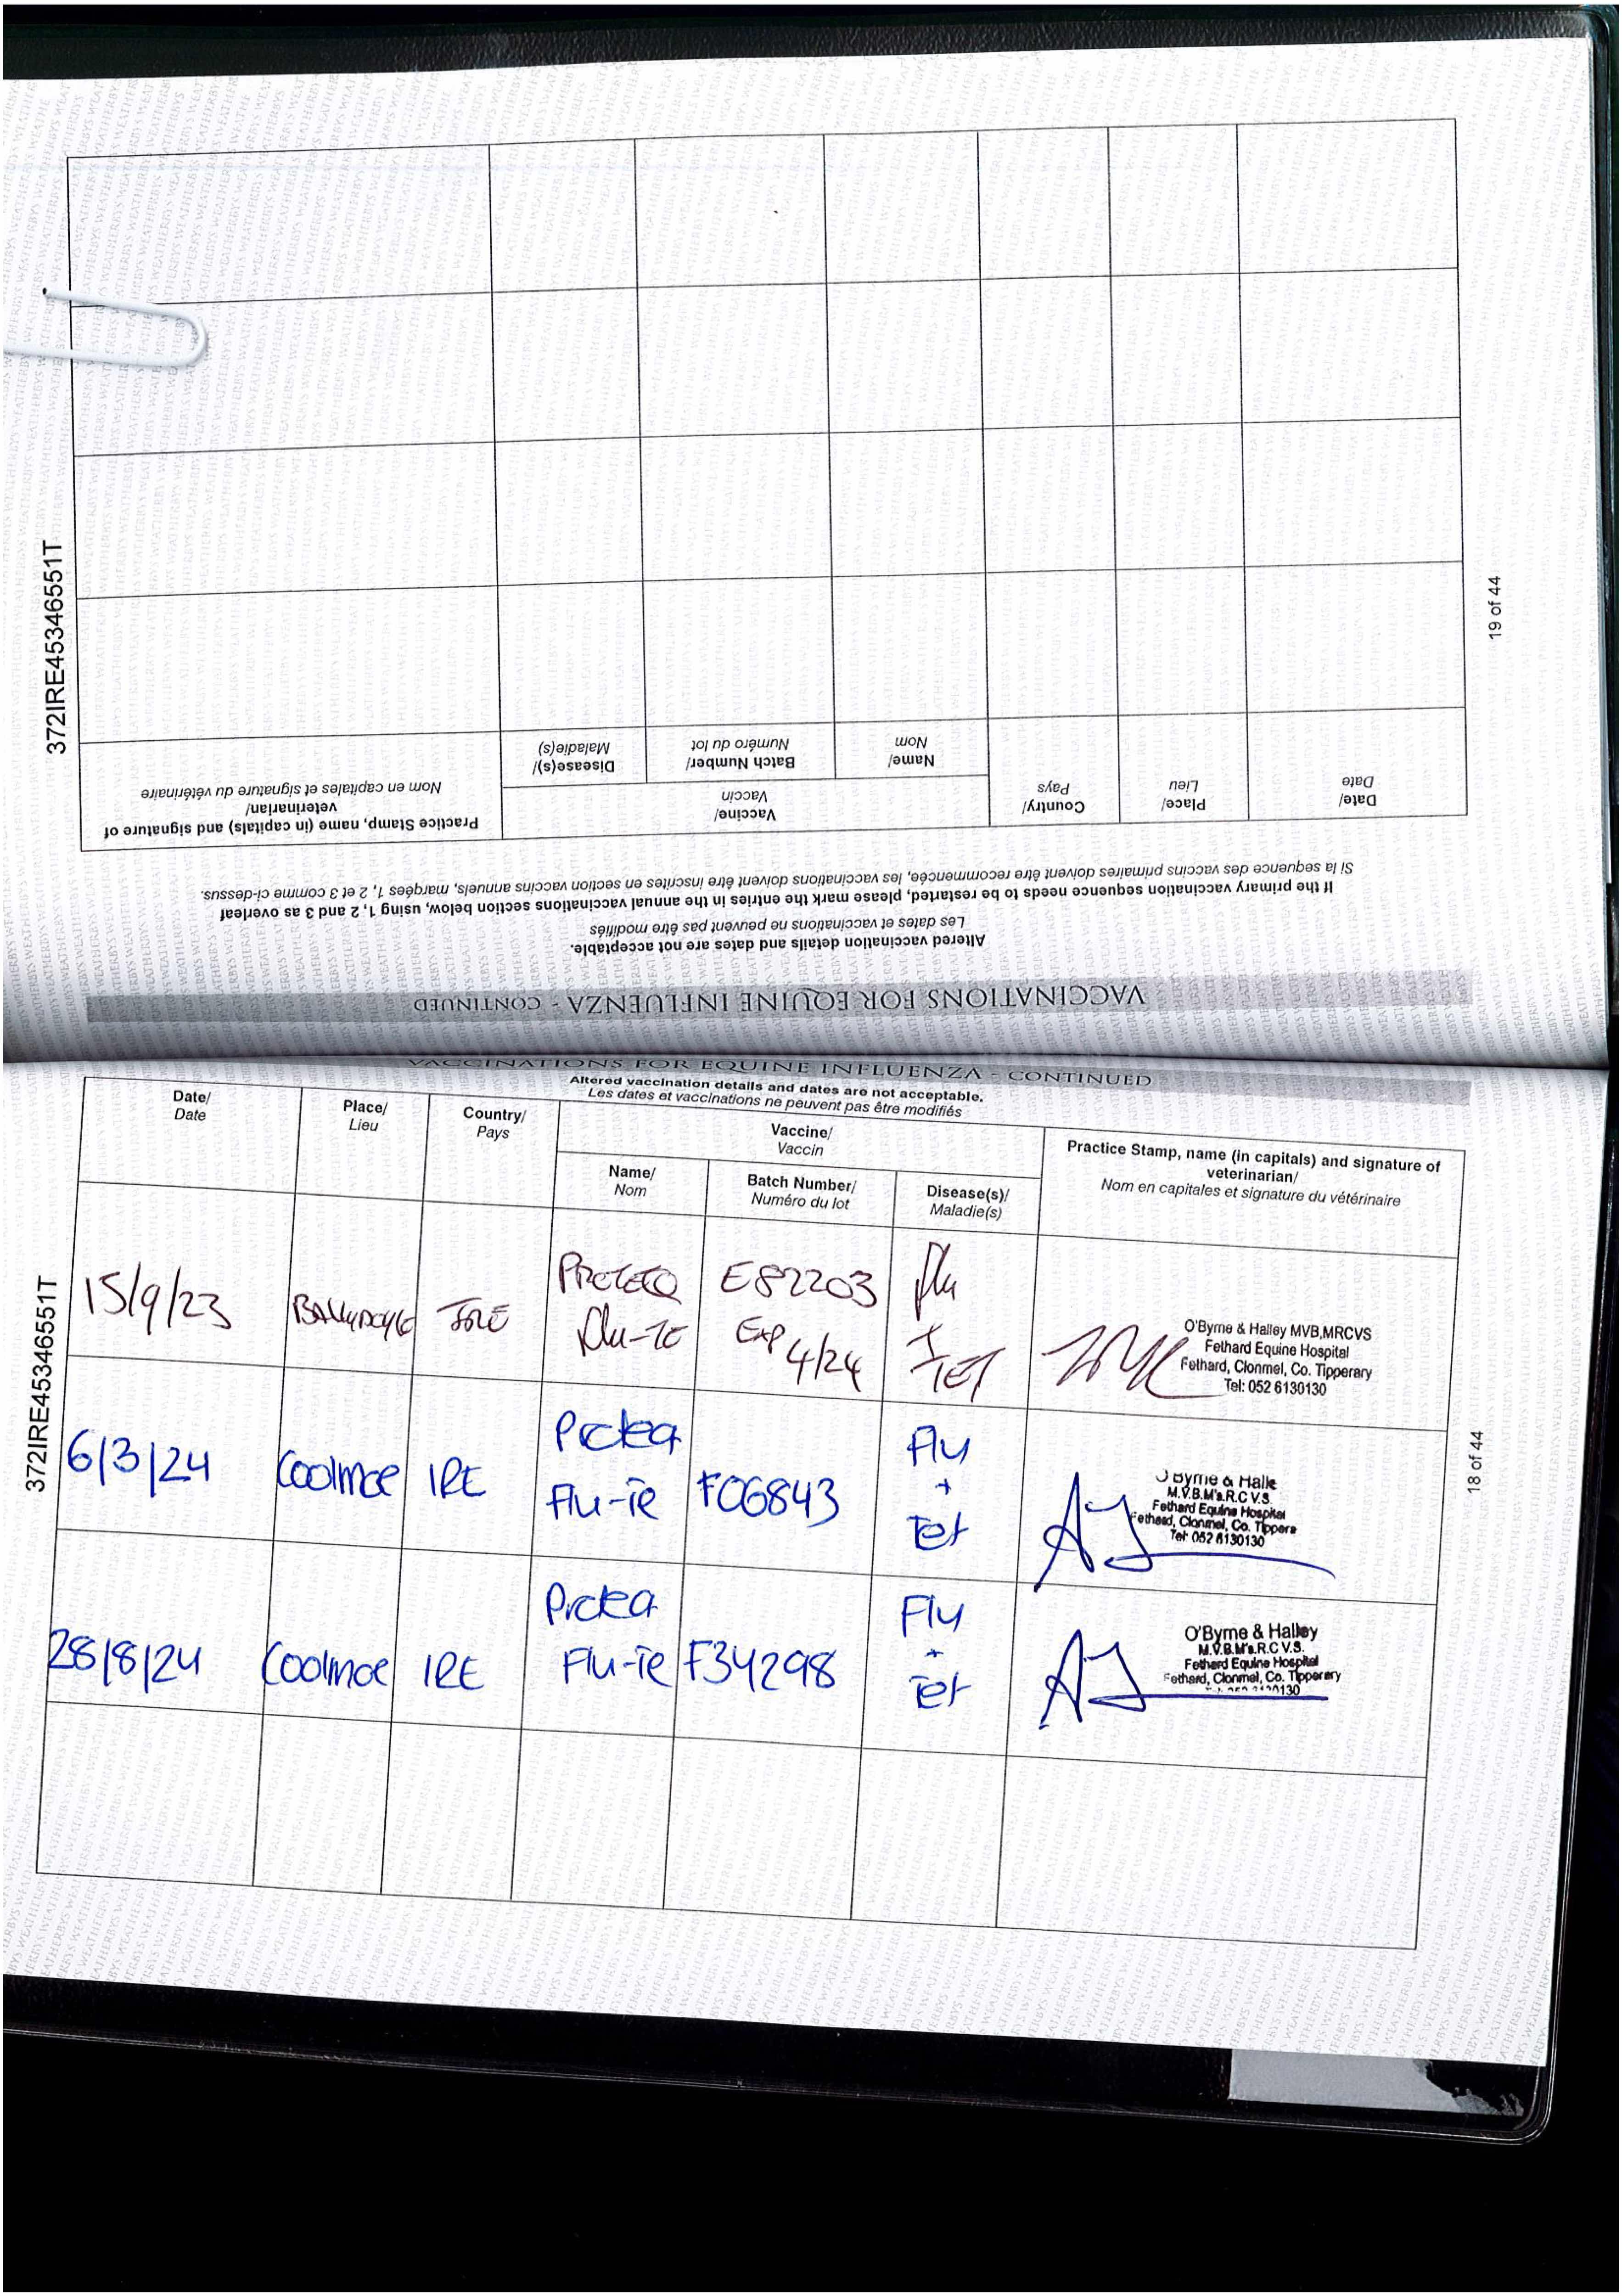 372IRE45346551T
19 of 44
VACCINATIONS FOR EQUINE INFLUENZA - CONTINUED
Altered vaccination details and dates are not acceptable.
Les dates et vaccinations ne peuvent pas être modifiés
If the primary vaccination sequence needs to be restarted, please mark the entries in the annual vaccinations section below, using 1, 2 and 3 as overleaf
Si la sequence des vaccins primaires doivent être recommencée, les vaccinations doivent être inscrites en section vaccins annuels, margées 1, 2 et 3 comme ci-dessus.
Date/
Date
Place/
Lieu
Country/
Pays
Vaccine/
Vaccin
Name/
Nom
Batch Number/
Numéro du lot
Disease(s)/
Maladie(s)
Practice Stamp, name (in capitals) and signature of
veterinarian/
Nom en capitales et signature du vétérinaire
VACCINATIONS FOR EQUINE INFLUENZA - CONTINUED
Altered vaccination details and dates are not acceptable.
Les dates et vaccinations ne peuvent pas être modifiés
Date/
Date
Place/
Lieu
Country/
Pays
Vaccine/
Vaccin
Name/
Nom
Batch Number/
Numéro du lot
Disease(s)/
Maladie(s)
Practice Stamp, name (in capitals) and signature of
veterinarian/
Nom en capitales et signature du vétérinaire
372IRE45346551T
18 of 44
15/9/23 BALLYDOYLE IRE
PROTEQ
Flu-TE
E82203
EXP 4/24
flu
+
TET
O'Byrne & Halley MVB,MRCVS
Fethard Equine Hospital
Fethard, Clonmel, Co. Tipperary
Tel: 052 6130130
6/3/24 Coolmoe IRE
Proteq
Flu-Te
F06843
Flu
+
Tet
O Byrne & Halle
M.V.B.M's.R.C V.S.
Fethard Equine Hospital
Fethard, Clonmel, Co. Tippera
Tel: 052 6130130
28/8/24 Coolmoe IRE
Proteq
Flu-Te
F34298
Flu
+
Tet
O'Byrne & Halley
M.V.B.M's.R.C V.S.
Fethard Equine Hospital
Fethard, Clonmel, Co. Tipperary